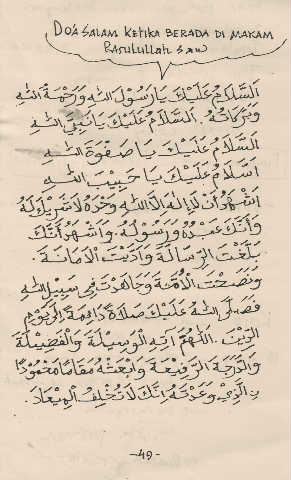 DO'A SALAM KETIKA BERADA DI MAKAM
RASULULLAH SAW
اَلسَّلَامُ عَلَيْكَ يَا رَسُوْلَ اللهِ وَرَحْمَةُ اللهِ
وَبَرَكَاتُهُ. اَلسَّلَامُ عَلَيْكَ يَا نَبِيَّ اللهِ
اَلسَّلَامُ عَلَيْكَ يَا صَفْوَةَ اللهِ
اَسَّلَامُ عَلَيْكَ يَا حَبِيْبَ اللهِ
اَشْهَدُ اَنْ لَا اِلٰهَ اِلَّا اللهُ وَحْدَهُ لَا شَرِيْكَ لَهُ
وَأَنَّكَ عَبْدُهُ وَرَسُوْلُهُ. وَاَشْهَدُ اَنَّكَ
بَلَّغْتَ الرِّسَالَةَ وَاَدَّيْتَ الْاَمَانَةَ.
وَنَصَحْتَ الْاُمَّةَ وَجَاهَدْتَ فِى سَبِيْلِ اللهِ
فَصَلَّى اللهُ عَلَيْكَ صَلَاةً دَائِمَةً اِلَى يَوْمِ
الدِّيْنِ. اَللّٰهُمَّ آتِهِ الْوَسِيْلَةَ وَالْفَضِيْلَةَ
وَالدَّرَجَةَ الرَّفِيْعَةَ وَابْعَثْهُ مَقَامًا مَحْمُوْدًا
الَّذِيْ وَعَدْتَهُ اِنَّكَ لَا تُخْلِفُ الْمِيْعَادَ.
-49-